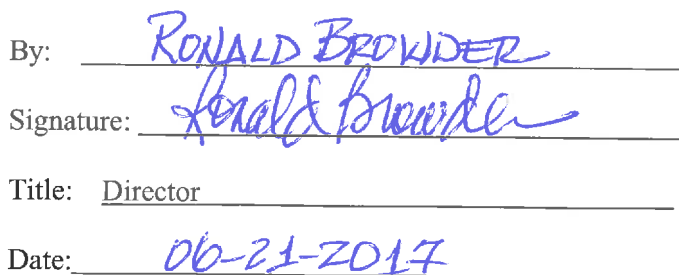 By: RONALD BROWDER
Signature: Ronald Browder
Title: Director
Date: 06-21-2017